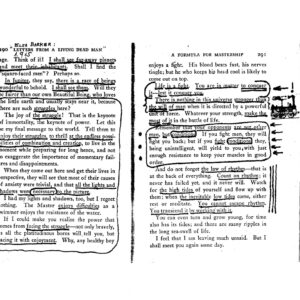 ELSA BARKER:
290 "LETTERS FROM A LIVING DEAD MAN"
Think of it! I shall see far-away planets
and meet their inhabitants. Shall I find the
"square-faced men"? Perhaps so.
In Jupiter, they say, there is a race of beings
wonderful to behold. I shall see them. Will they
be fairer than our own Beautiful Being, who loves
the little earth and usually stays near it, because
there are such struggles here?
The joy of the struggle! That is the keynote
of immortality, the keynote of power. Let this
be my final message to the world. Tell them to
enjoy their struggles, to thrill at the endless possi-
bilities of combination and creation, to live in the
moment while preparing for long hence, and not
to exaggerate the importance of momentary fail-
ures and disappointments.
When they come out here and get their lives in
perspective, they will see that most of their causes
of anxiety were trivial, and that all the lights and
shadows were necessary to the
I had my lights and shadows, too, but I regret
nothing. The Master enjoys difficulties as a
swimmer enjoys the resistance of the water.
If I could make you realize the power that
comes from facing the struggle—not only bravely,
as all the platitudinous bores will tell you, but
facing it with enjoyment. Why, any healthy boy
A FORMULA FOR MASTERSHIP 291
enjoys a fight. His blood beats fast, his nerves
tingle; but he who keeps his head cool is likely to
come out on top.
Life is a fight. You are in matter to conquer
lest it conquer you.
There is nothing in this universe stronger than
the will of man when it is directed by a powerful
unit of force. Whatever your strength, make the
most of it in the battle of life.
And remember that your opponents are not other
men, but conditions. If you fight men, they will
fight you back; but if you fight conditions, they,
being unintelligent, will yield to you with just
enough resistance to keep your muscles in good
order.
And do not forget the law of rhythm—that is
at the back of everything. Count on rhythm; it
never has failed yet, and it never will. Watch
for the high tides of yourself and flow up with
them; when the inevitable low tides come, either
rest or meditate. You cannot escape rhythm.
You transcend it by working with it.
You can even turn and grow young, for time
also has its tides; and there are many ripples in
the long sea-swell of life.
I feel that I am leaving much unsaid. But I
shall meet you again some day.